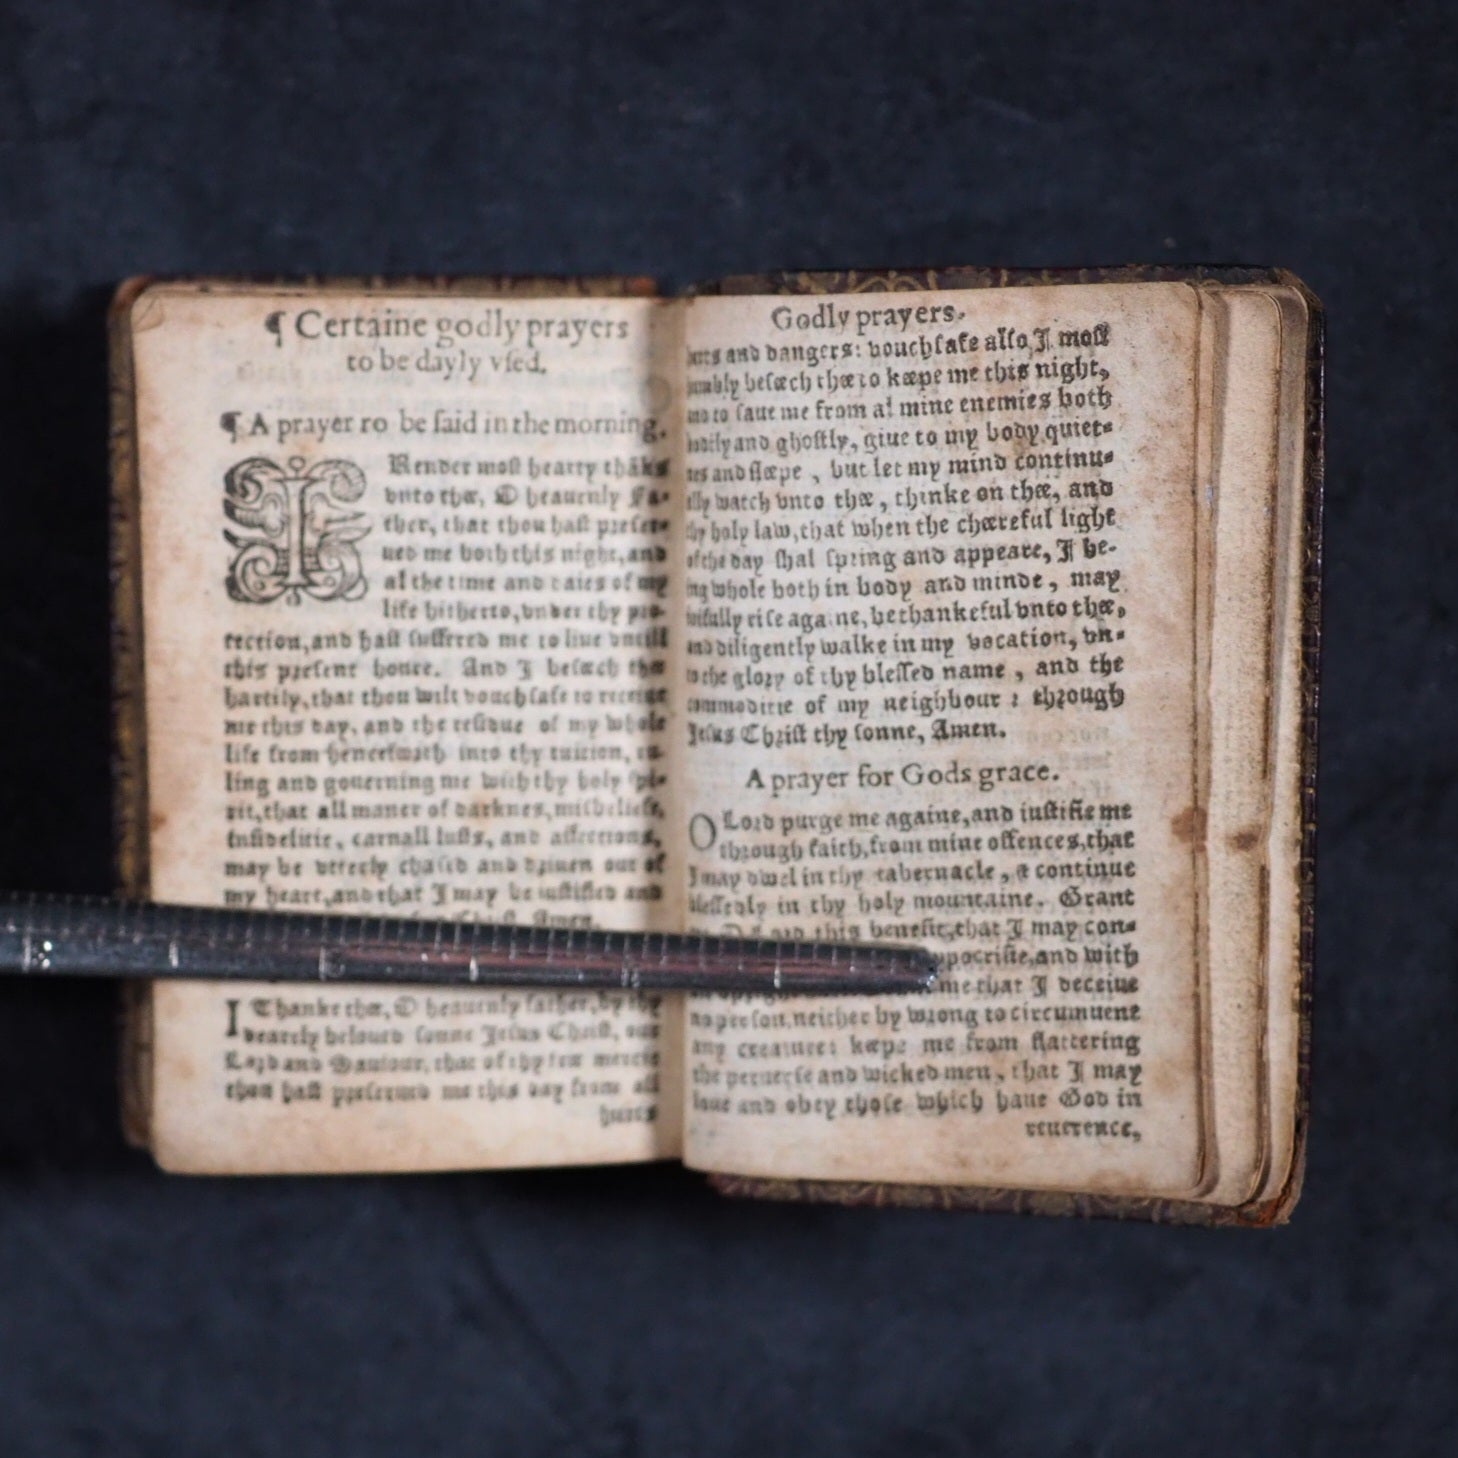 ¶ Certaine godly prayers
to be dayly vſed.
¶ A prayer ro be ſaid in the morning.
I Render moſt hearty thāks
vnto thee, O heauenly Fa-
ther, that thou haſt preſer-
ued me both this night, and
al the time and daies of my
life hitherto, vnder thy pro-
tection, and haſt ſuffered me to liue vntill
this preſent houre. And I beſeech thee
hartily, that thou wilt vouchſafe to receiue
me this day, and the reſidue of my whole
life from henceforth into thy tuition, ru-
ling and gouerning me with thy holy ſpi-
rit, that all maner of darknes, misbeliefe,
infidelitie, carnall luſts, and affections,
may be vtterly chaſed and driuen out of
my heart, and that I may be iuſtified and
Chriſt. Amen.
I Thanke thee, O heauenly father, by thy
dearely beloued ſonne Jeſus Chriſt, our
Lord and Sauiour, that of thy free mercie
thou haſt preſerued me this day from all
hurts
Godly prayers.
hurts and dangers: vouchſafe alſo I moſt
humbly beſeech thee to keepe me this night,
and to ſaue me from al mine enemies both
bodily and ghoſtly, giue to my body quiet-
nes and ſleepe, but let my mind continu-
ally watch vnto thee, thinke on thee, and
thy holy law, that when the cheereful light
of the day ſhal ſpring and appeare, I be-
ing whole both in body and minde, may
ioifully riſe againe, be thankeful vnto thee,
and diligently walke in my vocation, vn-
to the glory of thy bleſſed name, and the
commoditie of my neighbour: through
Jeſus Chriſt thy ſonne, Amen.
A prayer for Gods grace.
O Lord purge me againe, and iuſtifie me
through faith, from mine offences, that
I may dwel in thy tabernacle, & continue
bleſſedly in thy holy mountaine. Grant
O Lord this benefit, that I may con-
hypocriſie, and with
me that I deceiue
no perſon, neither by wrong to circumuent
any creature: keepe me from flattering
the peruerſe and wicked men, that I may
loue and obey thoſe which haue God in
reuerence,